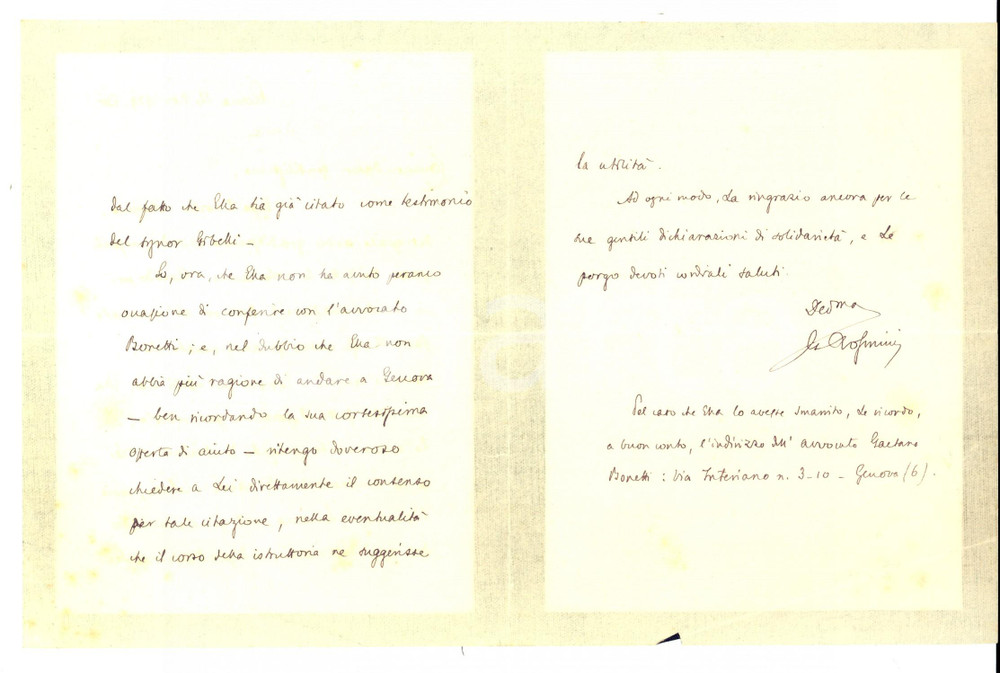 dal fatto che Ella sia già citato come testimonio
del signor Gibelli –
So, ora, che Ella non ha avuto peranco
occasione di conferire con l'avvocato
Bonetti ; e, nel dubbio che Ella non
abbia più ragione di andare a Genova
– ben ricordando la sua cortesissima
offerta di aiuto – ritengo doveroso
chiedere a Lei direttamente il consenso
per tale citazione, nella eventualità
che il corso della istruttoria ne suggerisse
la utilità.
Ad ogni modo, La ringrazio ancora per le
sue gentili dichiarazioni di solidarietà, e Le
porgo devoti cordiali saluti.
Pel caso che Ella lo avesse smarrito, Le ricordo,
a buon conto, l'indirizzo dell' avvocato Gaetano
Bonetti : Via Interiano n. 3-10 – Genova (6).